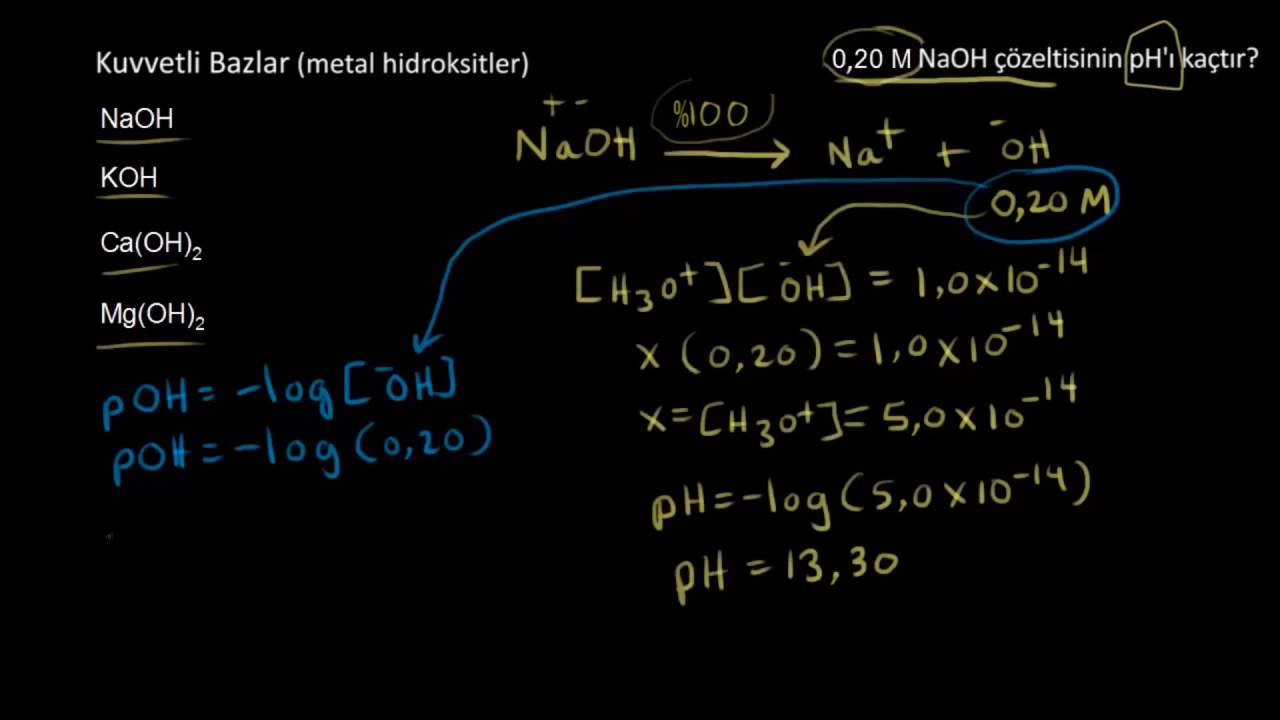 Kuvvetli Bazlar (metal hidroksitler)
0,20 M NaOH çözeltisinin pH'ı kaçtır?
NaOH
KOH
Ca(OH)₂
Mg(OH)₂
+ -
NaOH %100 → Na⁺ + ⁻OH
0,20 M
[H₃O⁺][⁻OH] = 1,0×10⁻¹⁴
x (0,20) = 1,0×10⁻¹⁴
x = [H₃O⁺] = 5,0×10⁻¹⁴
pH = -log(5,0×10⁻¹⁴)
pH = 13,30
pOH = -log[⁻OH]
pOH = -log(0,20)